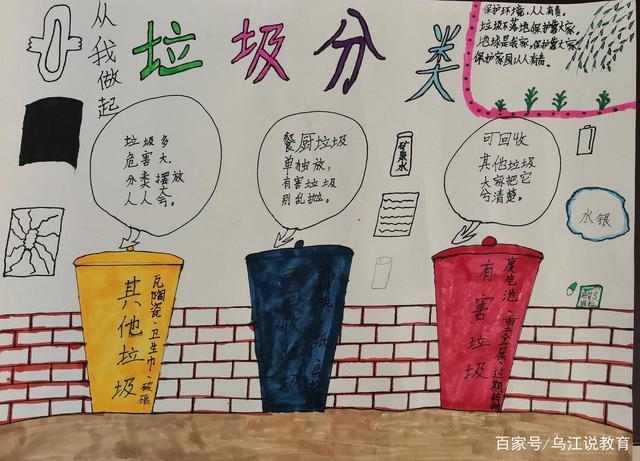 从我做起
垃圾分类
保护环境,人人有责。
垃圾不落地,保护靠大家,
地球是我家,保护靠大家,
保护家园人人有责。
垃圾多
危害大,
分类摆放
人人会。
餐厨垃圾
单独放,
有害垃圾
别乱抛。
可回收
其他垃圾
大家把它
分清楚。
矿泉水
水银
其他垃圾
瓦陶瓷·卫生巾·破碗·
可回收垃圾
有害垃圾
废电池·重金属·过期药物
百家号/乌江说教育